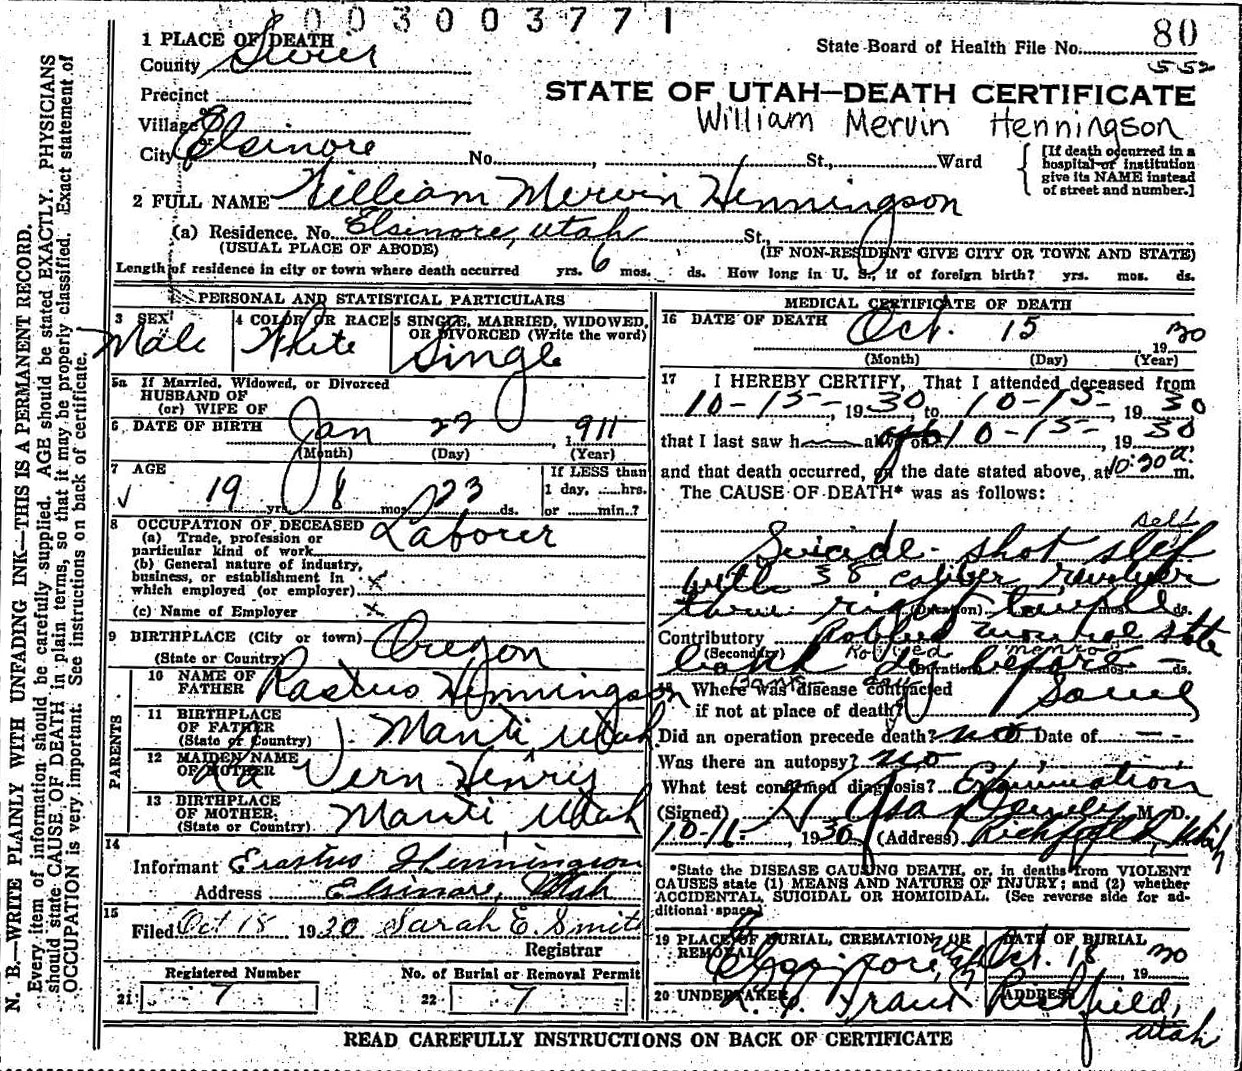 1003003771
1 PLACE OF DEATH
State Board of Health File No. 80
552
County Sevier
Precinct
STATE OF UTAH—DEATH CERTIFICATE
William Mervin Henningson
Village
City Elsinore No. , St., Ward
[If death occurred in a hospital or institution give its NAME instead of street and number.]
2 FULL NAME William Mervin Henningson
(a) Residence. No. Elsinore, Utah St.,
(USUAL PLACE OF ABODE) (IF NON-RESIDENT GIVE CITY OR TOWN AND STATE)
Length of residence in city or town where death occurred yrs. 6 mos. ds. How long in U. S., if of foreign birth? yrs. mos. ds.
PERSONAL AND STATISTICAL PARTICULARS
3 SEX Male
4 COLOR OR RACE White
5 SINGLE, MARRIED, WIDOWED, OR DIVORCED (Write the word) Single
5a If Married, Widowed, or Divorced
HUSBAND OF
(or) WIFE OF
6 DATE OF BIRTH Jan 22, 1911
(Month) (Day) (Year)
7 AGE
19 yrs 8 mos 23 ds.
If LESS than
1 day, hrs.
or min.?
8 OCCUPATION OF DECEASED
(a) Trade, profession or
particular kind of work Laborer
(b) General nature of industry,
business, or establishment in
which employed (or employer) x
(c) Name of Employer x
9 BIRTHPLACE (City or town)
(State or Country) Oregon
PARENTS
10 NAME OF
FATHER Rastus Henningson
11 BIRTHPLACE
OF FATHER
(State or Country) Manti, Utah
12 MAIDEN NAME
OF MOTHER La Vern Henrie
13 BIRTHPLACE
OF MOTHER
(State or Country) Manti, Utah
14
Informant Erastus Henningson
Address Elsinore, Utah
15
Filed Oct 18 1930 Sarah E. Smith
Registrar
Registered Number
21 7
No. of Burial or Removal Permit
22 7
MEDICAL CERTIFICATE OF DEATH
16 DATE OF DEATH Oct. 15 1930
(Month) (Day) (Year)
17 I HEREBY CERTIFY, That I attended deceased from
10-15-, 1930, to 10-15- 1930
that I last saw h alive on 10-15-, 1930
and that death occurred, on the date stated above, at 10:30 a. m.
The CAUSE OF DEATH* was as follows:
self
Suicide - shot slef
with 38 caliber revolver
thru right temple
(Duration) mos. ds.
Contributory Robbed Monroe State
(Secondary) Robbed Monroe
bank day before
(Duration) mos. ds.
Bank day
18 Where was disease contracted
if not at place of death?
Did an operation precede death? no Date of - -
Was there an autopsy? no
What test confirmed diagnosis? Examination
(Signed) Dewey M. D.
10-16-, 1930 (Address) Richfield, Utah
*State the DISEASE CAUSING DEATH, or, in deaths from VIOLENT
CAUSES state (1) MEANS AND NATURE OF INJURY; and (2) whether
ACCIDENTAL, SUICIDAL OR HOMICIDAL. (See reverse side for ad-
ditional space.)
19 PLACE OF BURIAL, CREMATION, OR
REMOVAL Elsinore, Utah
DATE OF BURIAL
Oct. 18, 1930
20 UNDERTAKER
ADDRESS
Richfield,
Utah
READ CAREFULLY INSTRUCTIONS ON BACK OF CERTIFICATE
N. B.—WRITE PLAINLY WITH UNFADING INK—THIS IS A PERMANENT RECORD.
Every item of information should be carefully supplied. AGE should be stated EXACTLY. PHYSICIANS
should state CAUSE OF DEATH in plain terms, so that it may be properly classified. Exact statement of
OCCUPATION is very important. See instructions on back of certificate.